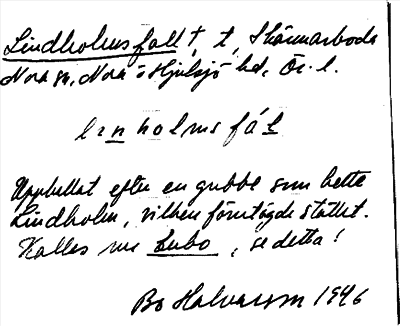 Lindholmsfallet, t, Skärmarboda
Nora sn, Nora o Hjulsjö hd, Ör. l.
linholmsfáḷ
Uppkallat efter en gubbe som hette
Lindholm, vilken företägde stället.
Kallas nu Lubo, se detta!
Bo Halvarson 1946